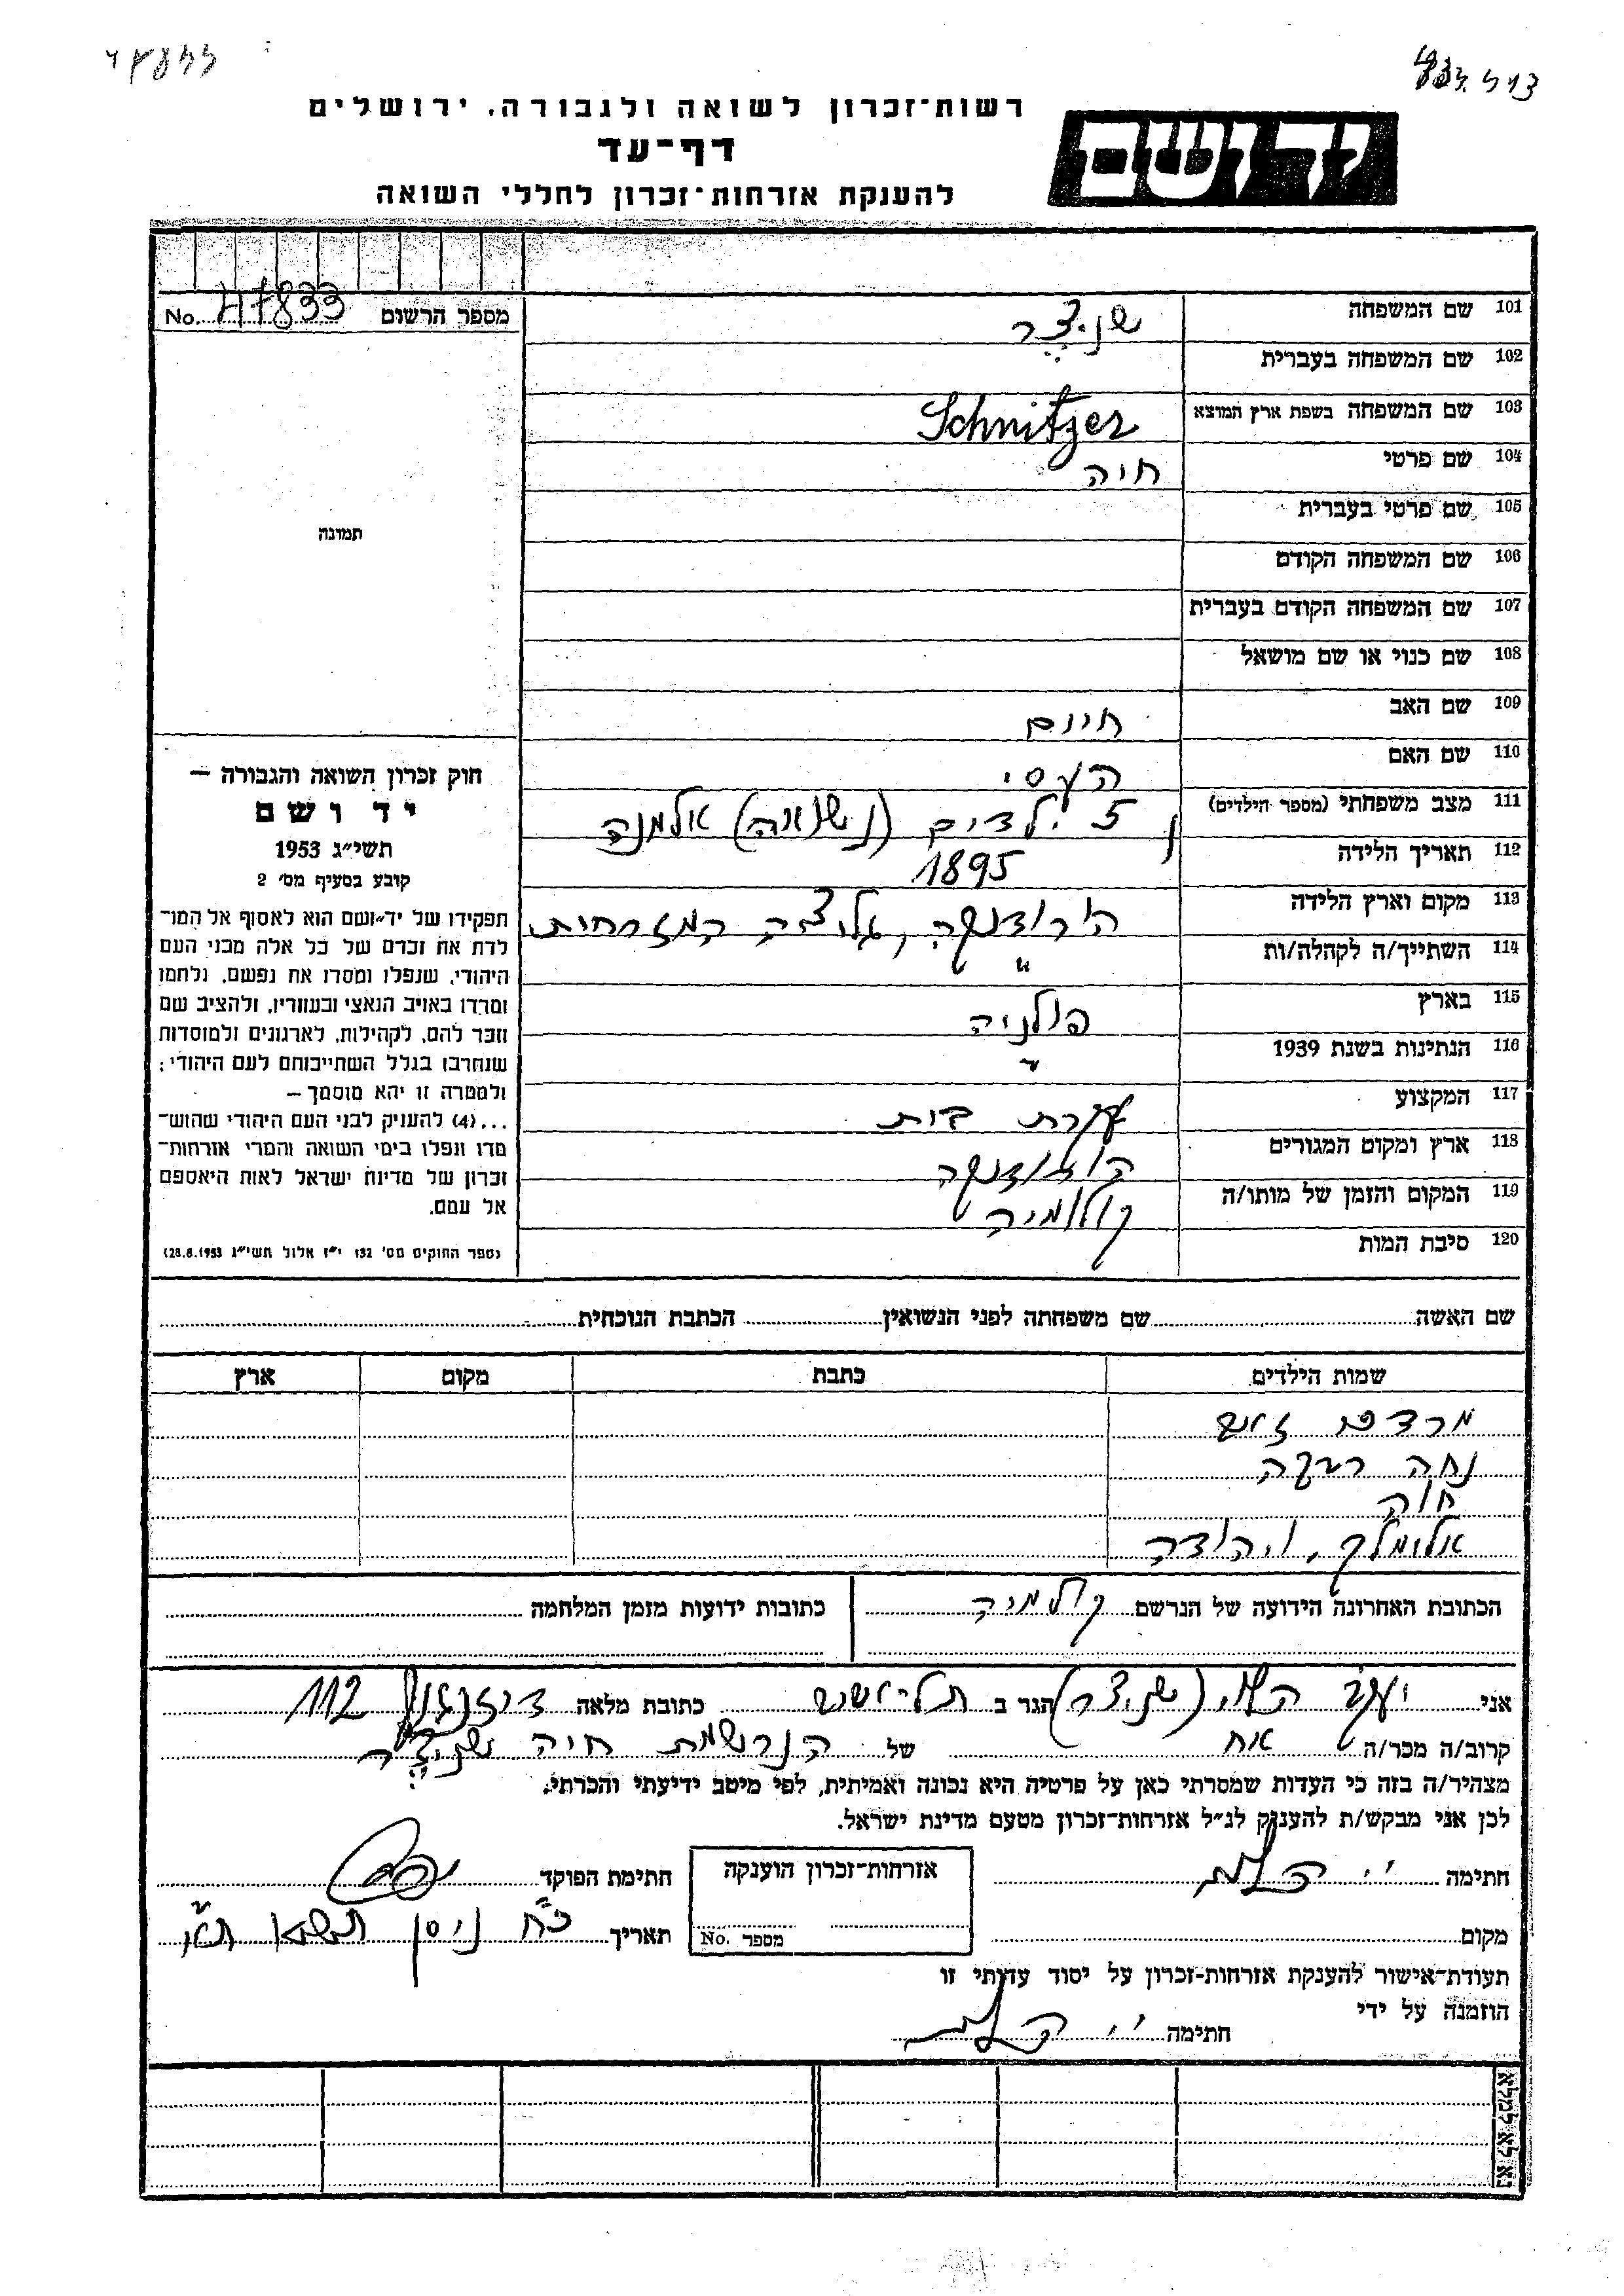 47833
רשות־זכרון לשואה ולגבורה, ירושלים
דף־עד
להענקת אזרחות־זכרון לחללי השואה
יד ושם
מספר הרשום No. 47833
תמונה
חוק זכרון השואה והגבורה —
יד ושם
תשי״ג 1953
קובע בסעיף מס׳ 2
תפקידו של יד־ושם הוא לאסוף אל המו־
לדת את זכרם של כל אלה מבני העם
היהודי, שנפלו ומסרו את נפשם, נלחמו
ומרדו באויב הנאצי ובעוזריו, ולהציב שם
וזכר להם, לקהילות, לארגונים ולמוסדות
שנחרבו בגלל השתייכותם לעם היהודי;
ולמטרה זו יהא מוסמך —
...(4) להעניק לבני העם היהודי שהוש־
מדו ונפלו בימי השואה והמרי אזרחות־
זכרון של מדינת ישראל לאות היאספם
אל עמם.
(ספר החוקים מס׳ 132 י״ז אלול תשי״ג 28.8.1953)
101 שם המשפחה שניצר
102 שם המשפחה בעברית
103 שם המשפחה בשפת ארץ המוצא Schnitzer
104 שם פרטי חיה
105 שם פרטי בעברית
106 שם המשפחה הקודם
107 שם המשפחה הקודם בעברית
108 שם כנוי או שם מושאל
109 שם האב חיים
110 שם האם הנסי
111 מצב משפחתי (מספר הילדים) 5 ילדים (נשואה) אלמנה
112 תאריך הלידה 1895
113 מקום וארץ הלידה הורודנקה, גליציה המזרחית
114 השתייך/ה לקהלה/ות "
115 בארץ פולניה
116 הנתינות בשנת 1939 "
117 המקצוע עקרת בית
118 ארץ ומקום המגורים הורודנקה
119 המקום והזמן של מותו/ה קולומיה
120 סיבת המות
שם האשה שם משפחתה לפני הנשואין הכתבת הנוכחית
שמות הילדים כתבת מקום ארץ
מרדכי זאב
נחה רבקה
חוה
אלימלך, ויהודה
הכתובת האחרונה הידועה של הנרשם קולומיה כתובות ידועות מזמן המלחמה
אני יעקב (שניצר) הגר ב תל־אביב כתובת מלאה דיזנגוף 112
קרוב/ה מכר/ה אח של הנרשמת חיה שניצר
מצהיר/ה בזה כי העדות שמסרתי כאן על פרטיה היא נכונה ואמיתית, לפי מיטב ידיעתי והכרתי.
לכן אני מבקש/ת להעניק לנ״ל אזרחות־זכרון מטעם מדינת ישראל.
חתימה אזרחות־זכרון הוענקה חתימת הפוקד
מקום מספר No. תאריך כ״ח ניסן
תעודת־אישור להענקת אזרחות־זכרון על יסוד עדותי זו
הוזמנה על ידי
חתימה
נא לא למלא